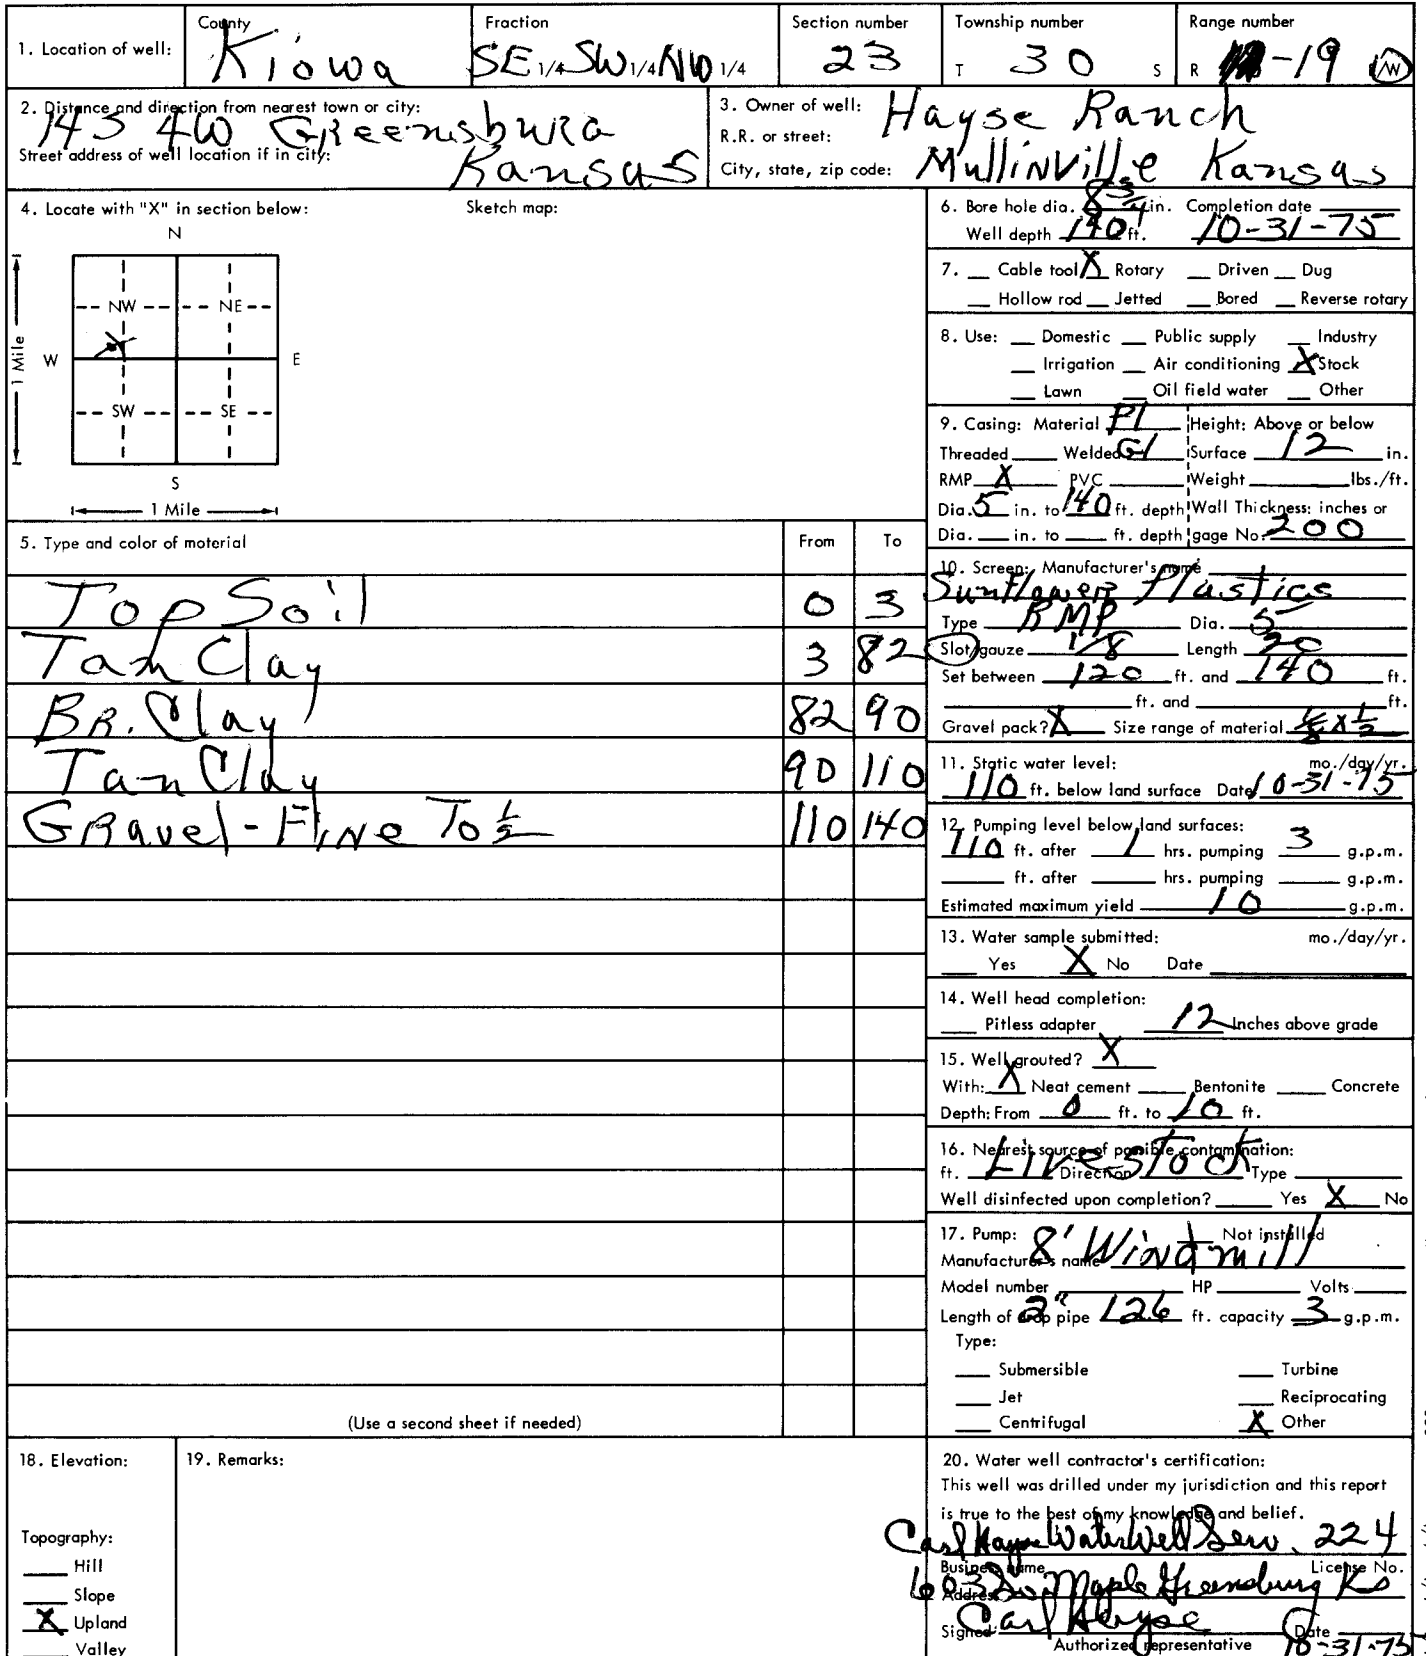 1. Location of well: County Kiowa Fraction SE 1/4 SW 1/4 NW 1/4 Section number 23 Township number T 30 S Range number R -19 W
2. Distance and direction from nearest town or city: 14S 4W Greensburg
Street address of well location if in city: Kansas
3. Owner of well: Hayse Ranch
R.R. or street:
City, state, zip code: Mullinville Kansas
4. Locate with "X" in section below: Sketch map:
N
NW NE
W E
SW SE
S
1 Mile
1 Mile
5. Type and color of material From To
Top Soil 0 3
Tan Clay 3 82
BR. Clay 82 90
Tan Clay 90 110
GRavel - Fine To 1/2 110 140
(Use a second sheet if needed)
6. Bore hole dia. 8 3/4 in. Completion date
Well depth 140 ft. 10-31-75
7. Cable tool X Rotary Driven Dug
Hollow rod Jetted Bored Reverse rotary
8. Use: Domestic Public supply Industry
Irrigation Air conditioning X Stock
Lawn Oil field water Other
9. Casing: Material Pl Height: Above or below
Threaded Welded Gl Surface 12 in.
RMP X PVC Weight lbs./ft.
Dia. 5 in. to 140 ft. depth Wall Thickness: inches or
Dia. in. to ft. depth gage No. 200
10. Screen: Manufacturer's name
Sunflower Plastics
Type RMP Dia. 5
Slot/gauze 1/8 Length 20
Set between 120 ft. and 140 ft.
ft. and ft.
Gravel pack? X Size range of material 1/8 x 1/2
11. Static water level: mo./day/yr.
110 ft. below land surface Date 10-31-75
12. Pumping level below land surfaces:
110 ft. after 1 hrs. pumping 3 g.p.m.
ft. after hrs. pumping g.p.m.
Estimated maximum yield 10 g.p.m.
13. Water sample submitted: mo./day/yr.
Yes X No Date
14. Well head completion:
Pitless adapter 12 Inches above grade
15. Well grouted? X
With: X Neat cement Bentonite Concrete
Depth: From 0 ft. to 10 ft.
16. Nearest source of possible contamination:
ft. Livestock Direction Type
Well disinfected upon completion? Yes X No
17. Pump: Not installed
Manufacturer's name 8' Windmill
Model number HP Volts
Length of drop pipe 2" 126 ft. capacity 3 g.p.m.
Type:
Submersible Turbine
Jet Reciprocating
Centrifugal X Other
18. Elevation:
Topography:
Hill
Slope
X Upland
Valley
19. Remarks:
20. Water well contractor's certification:
This well was drilled under my jurisdiction and this report
is true to the best of my knowledge and belief.
Carl Hayse Water Well Serv. 224
Business name License No.
603 So Maple Greensburg Ks
Address
Signed Carl Hayse Date 10-31-75
Authorized representative